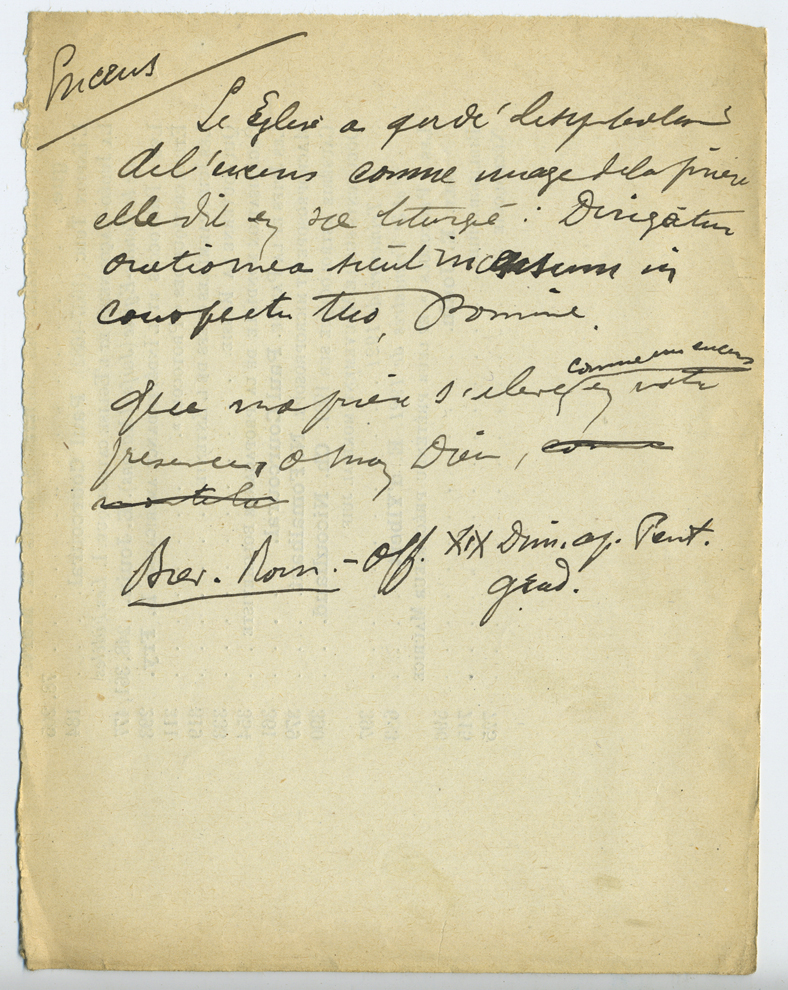 Encens
Le Eglise a gardé le symbolisme
de l'encens comme image de la prière
elle dit en sa liturgie : Dirigatur
oratio mea sicut incensum in
conspectu tuo, Domine.
comme un encens
que ma prière s'elève en votre
presence, o mon Dieu, come
Brev. Rom. - Off. XIX Dim. ap. Pent.
grad.